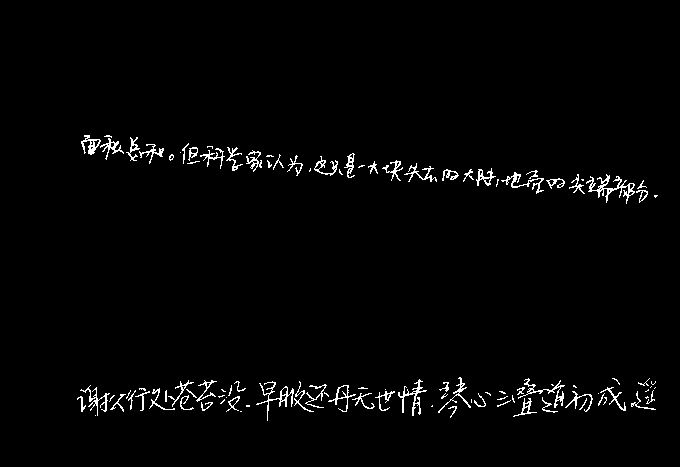 面积总和。但科学家认为,这只是一大块失去的大陆,地壳的尖端部分.
谢公行处苍苔没.早服还丹无世情,琴心三叠道初成.遥